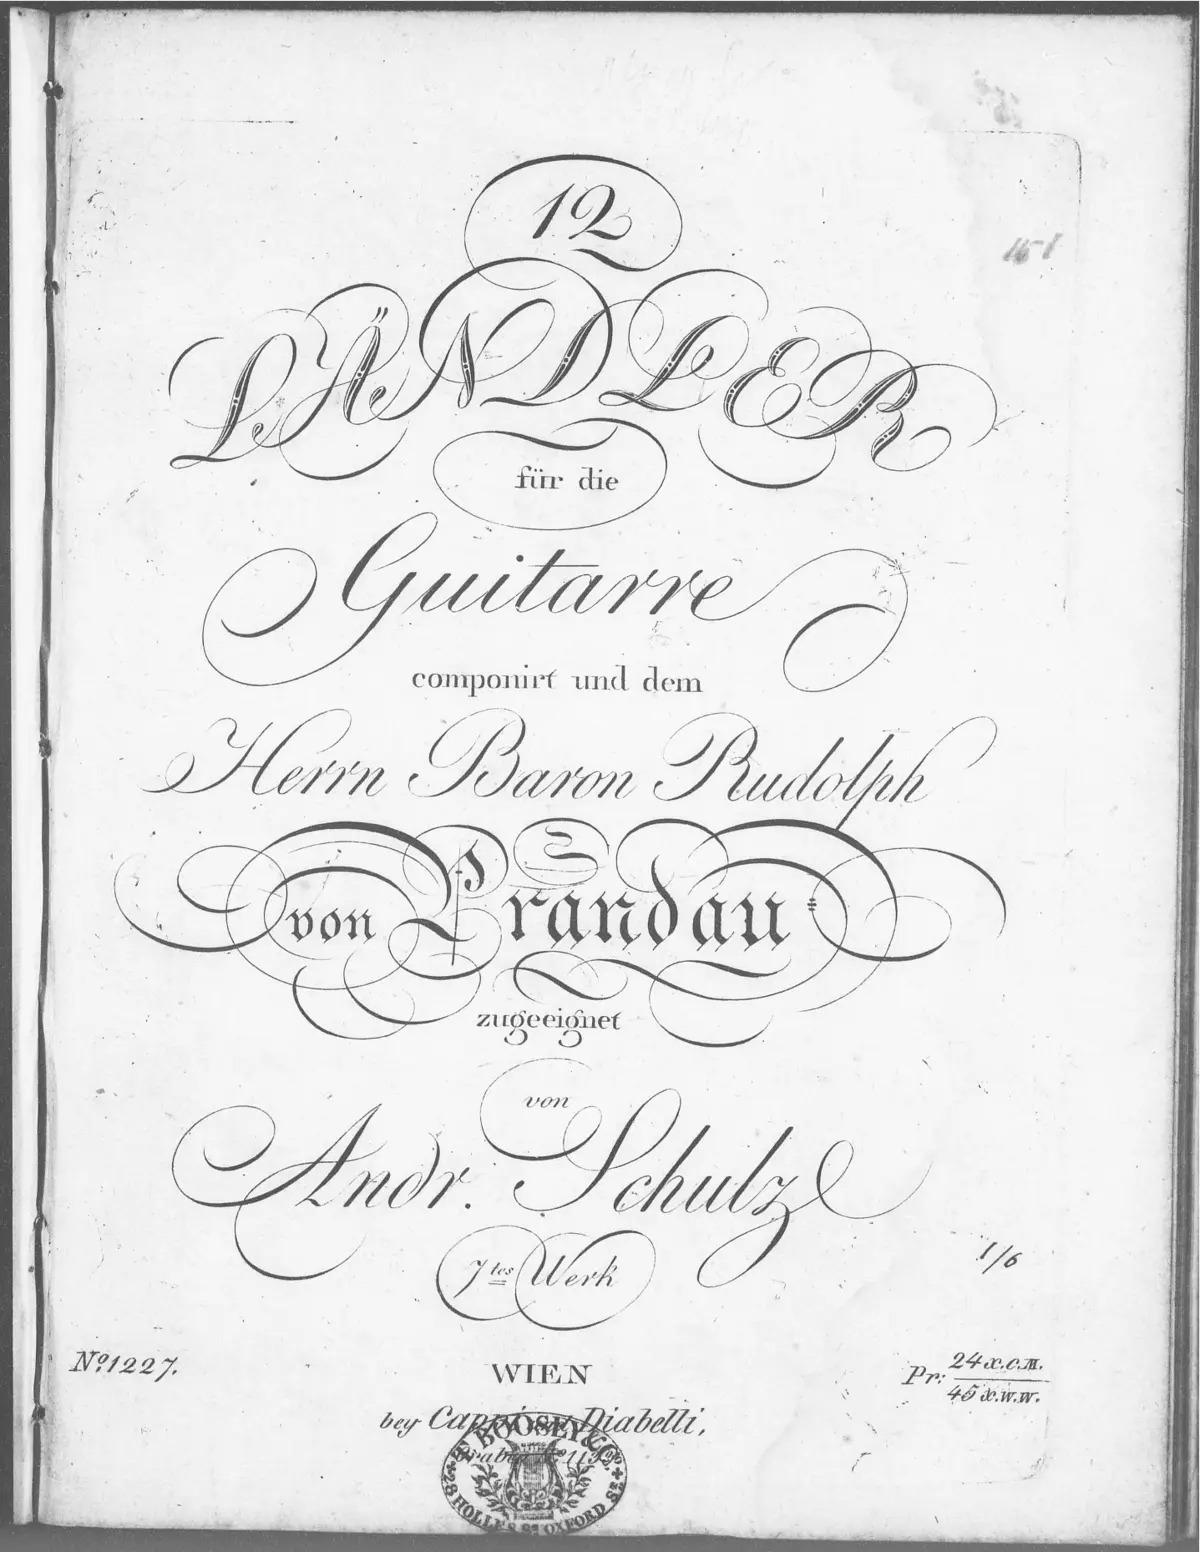 12
LÄNDLER
für die
Guitarre
componirt und dem
Herrn Baron Rudolph
von Prandau
zugeeignet
von
Andr. Schulz
7tes Werk
1/6
No. 1227.
WIEN
Pr: 24 x.C.M.
45 x.W.W.
bey Cappi und Diabelli,
T. BOOSEY & Co.
28 HOLLES St. OXFORD St.